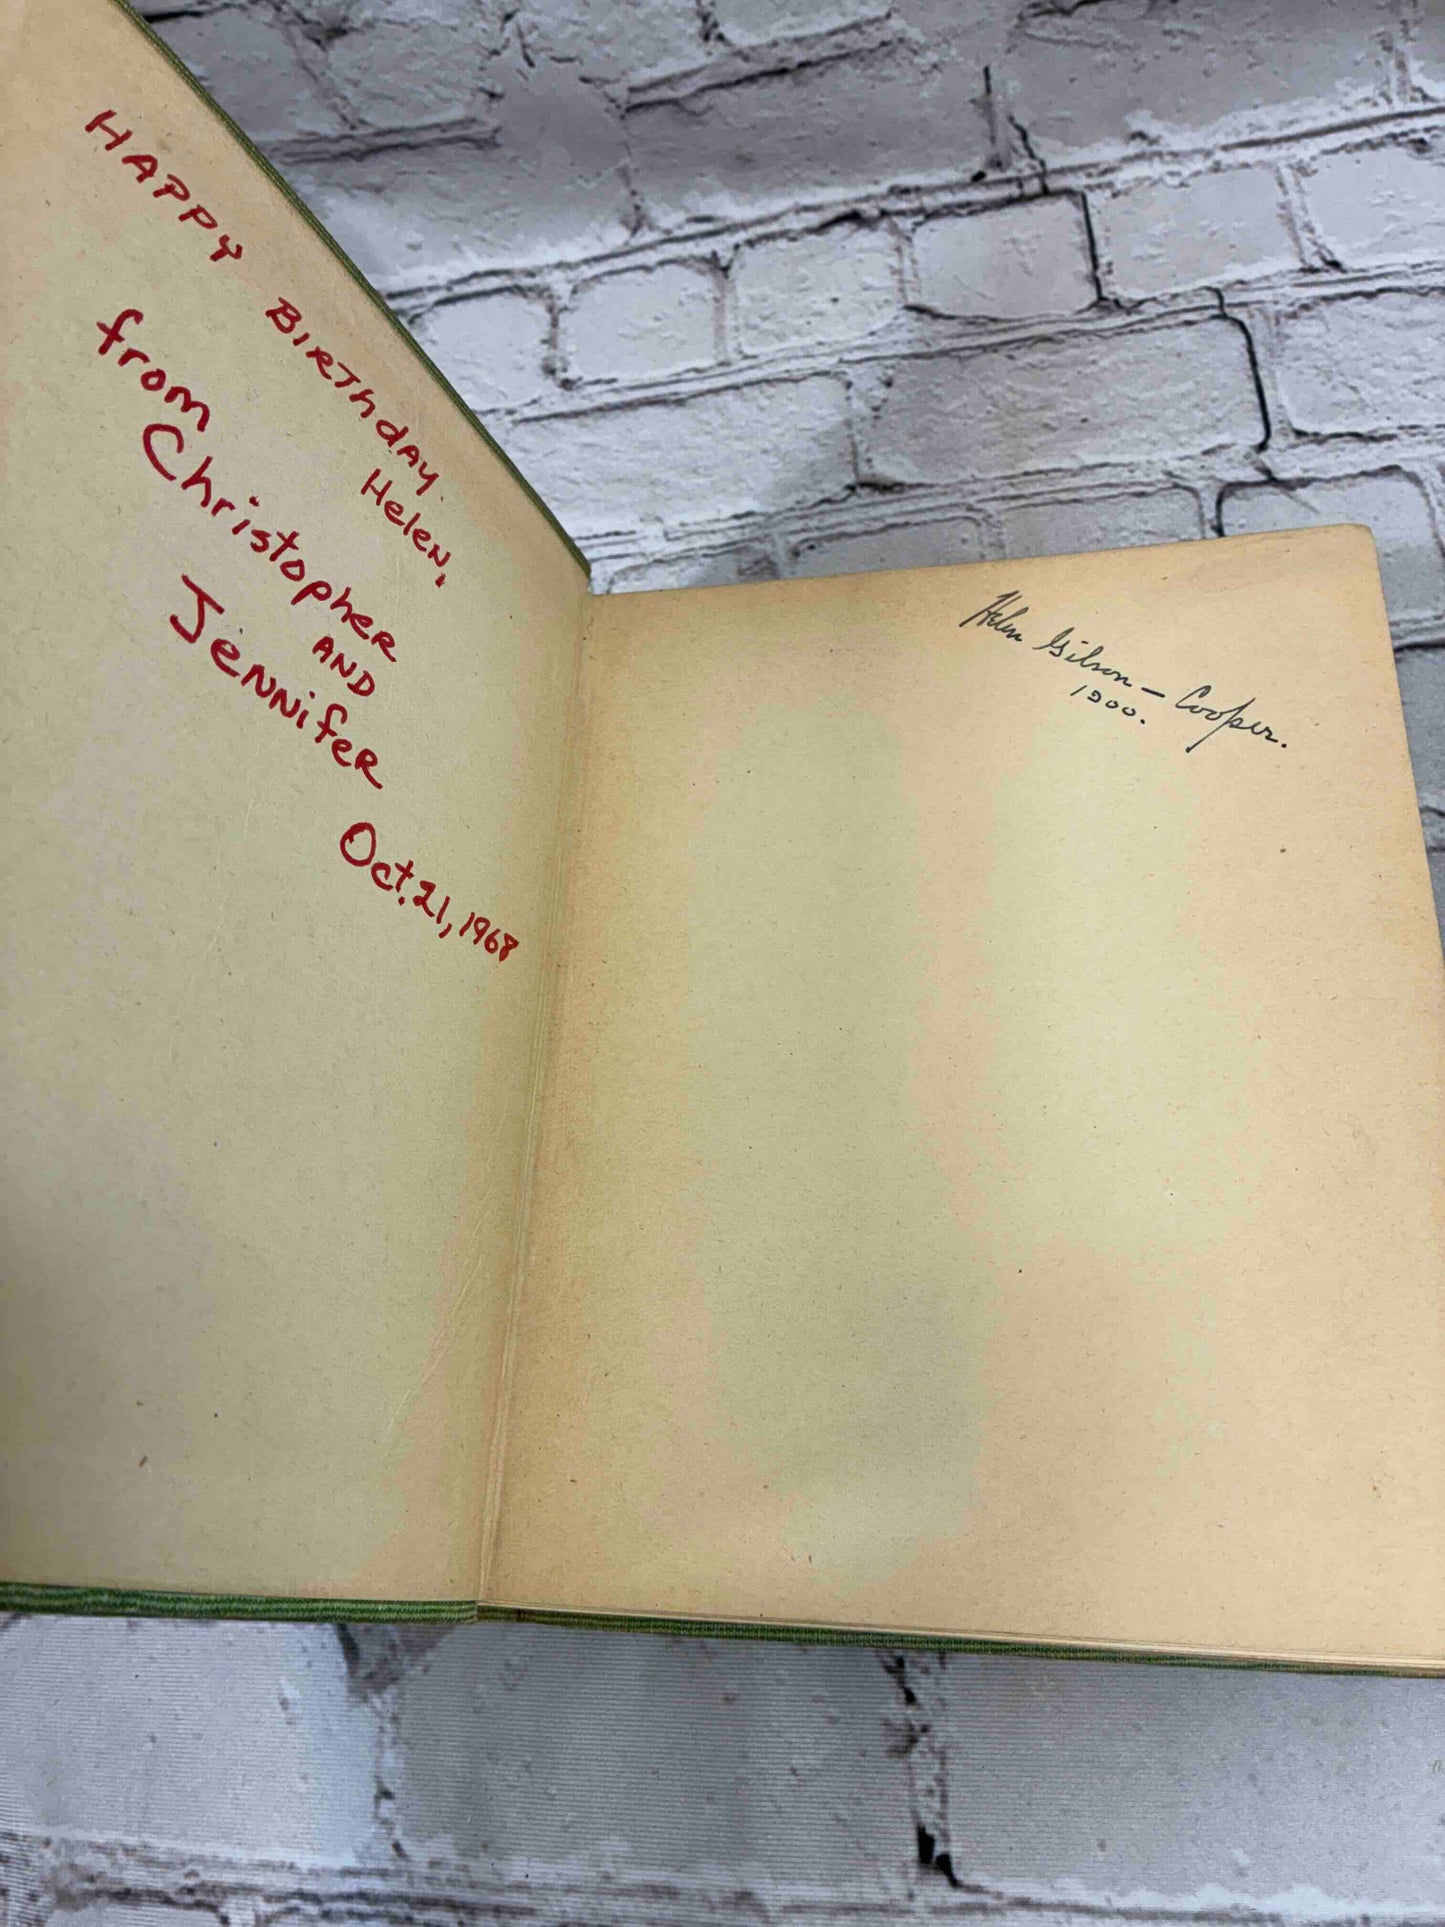 HAPPY BIRThdAY
Helen,
from
Christopher
AND
Jennifer
Oct. 21, 1968
Helen Gilson - Cooper.
1900.